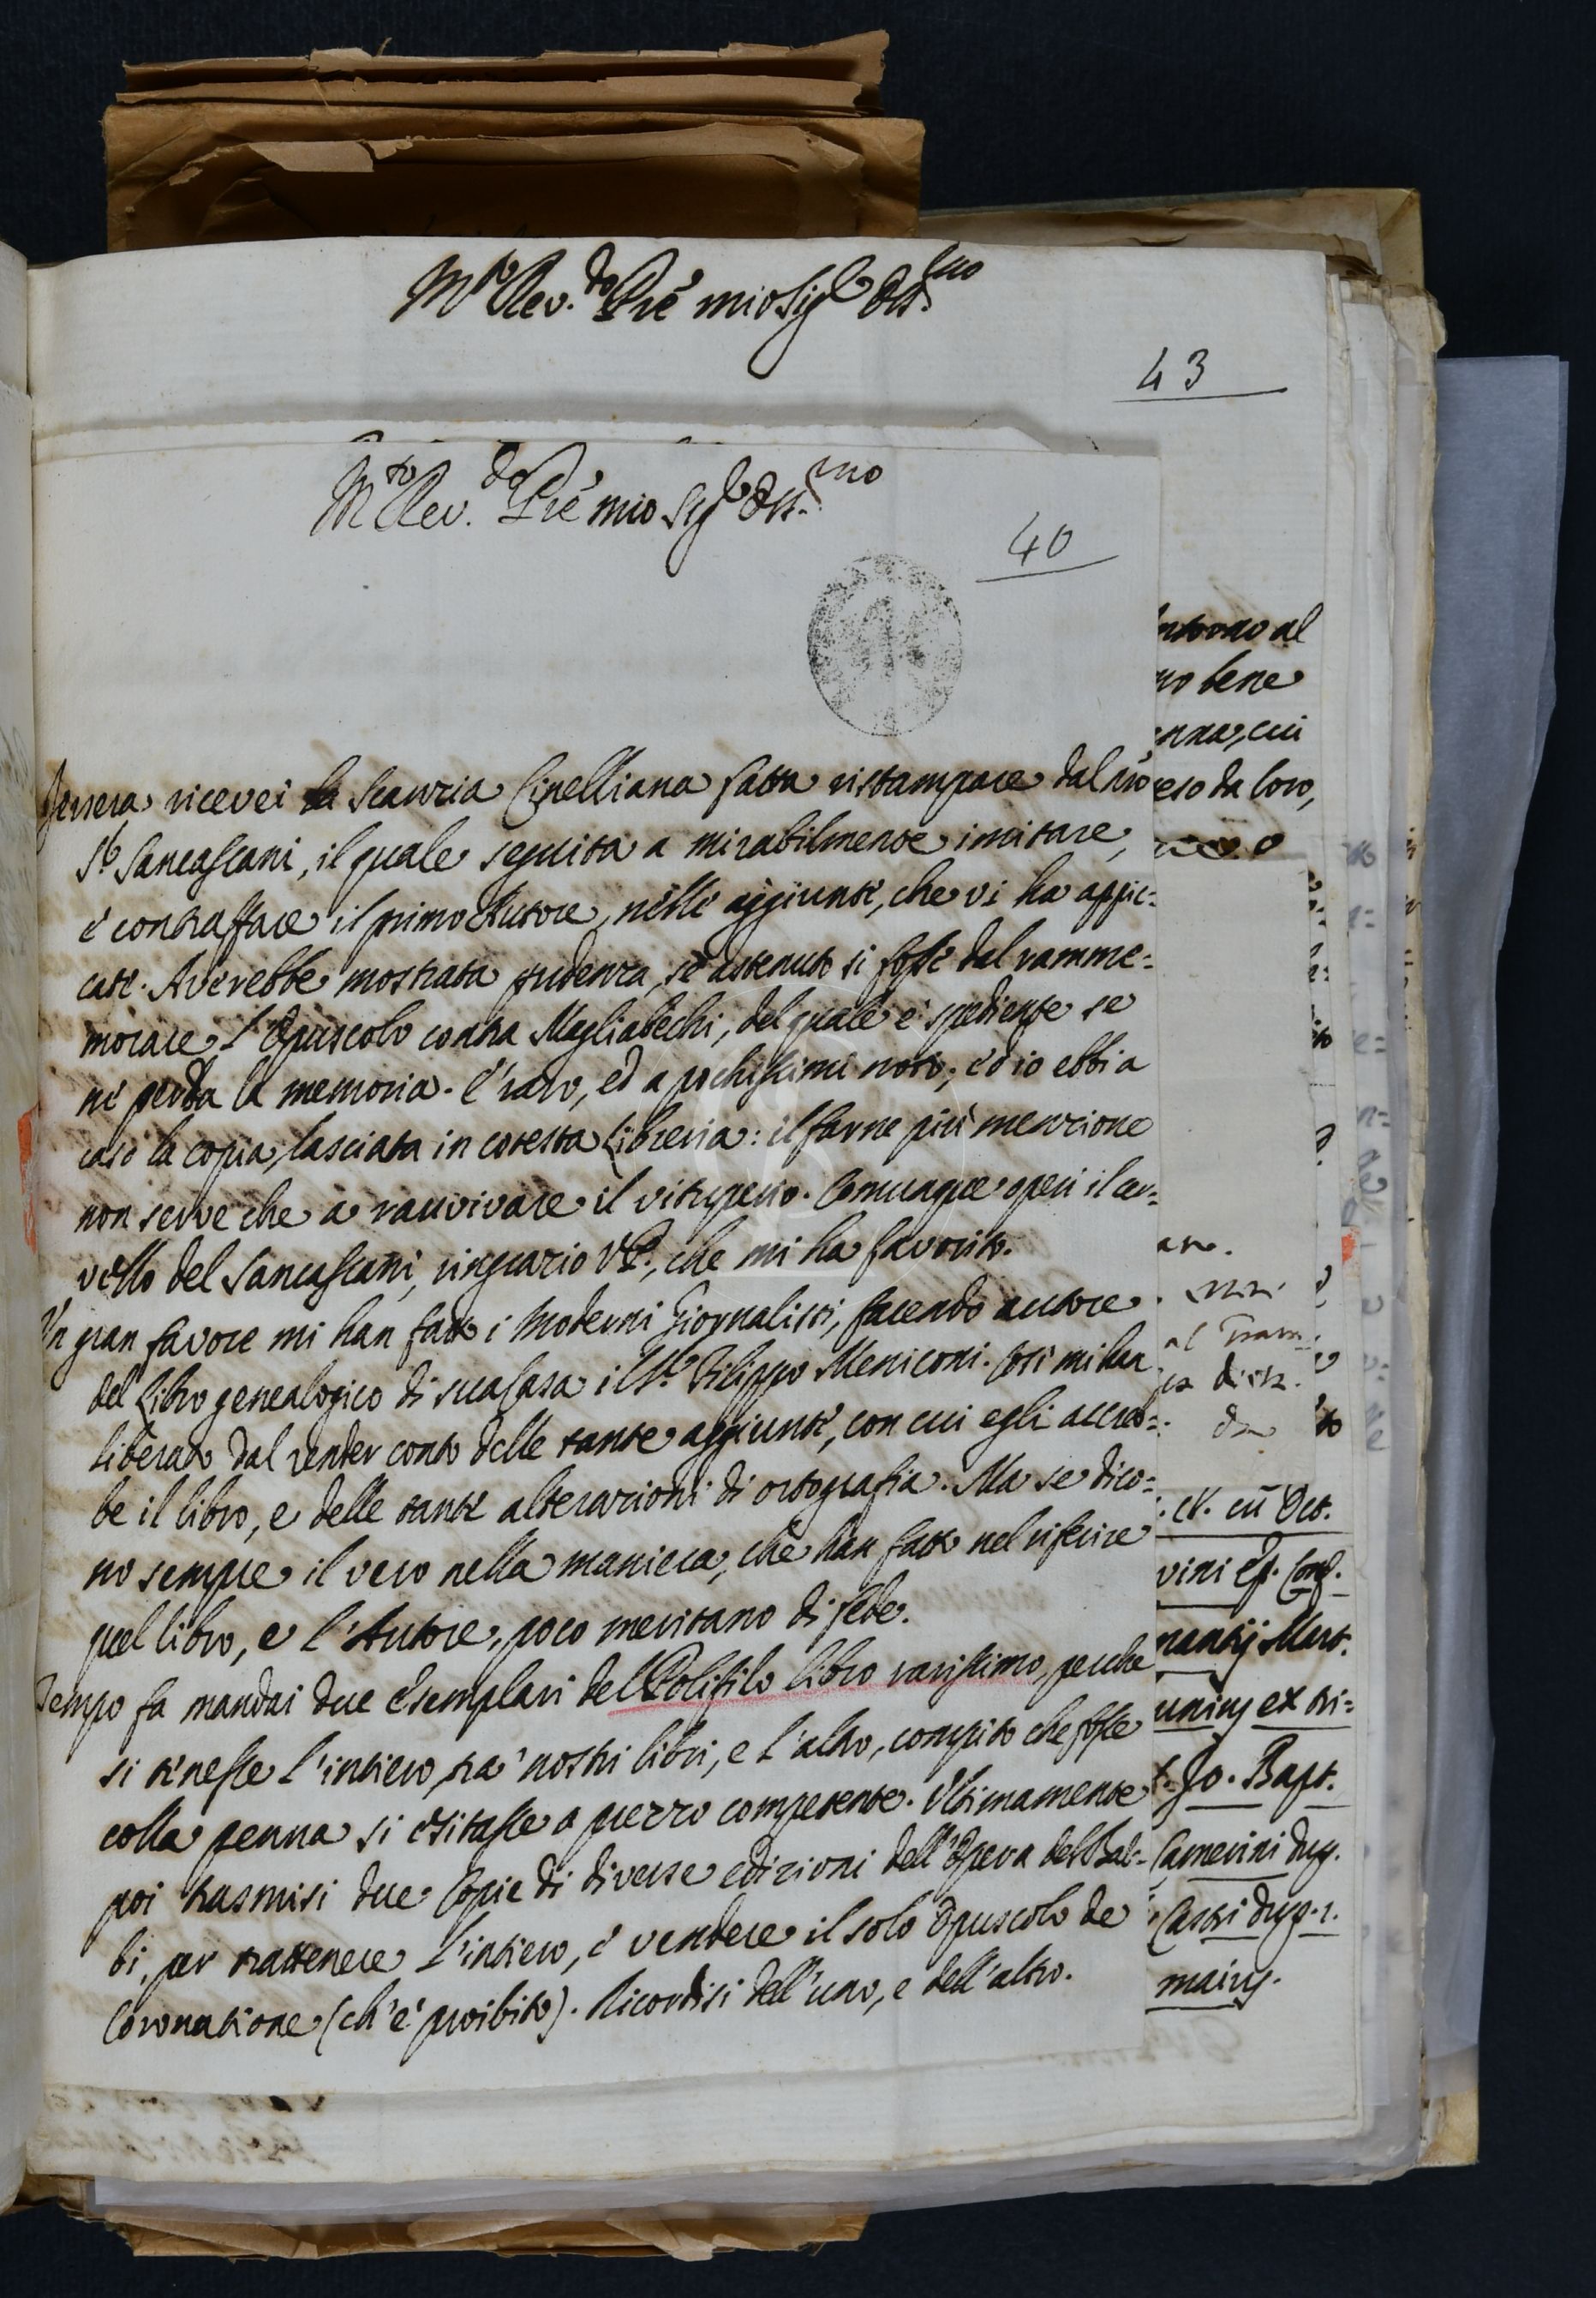 Mto Rev.do Pre' mio Sigr Oss.mo
43
Mto Rev.do Pre' mio Sigr Oss.mo
40
Jersera ricevei la Scanzia Cinelliana fatta ristampare dal
Sr Sancassani, il quale seguita a mirabilmente imitare,
e contraffare il primo Autore, nelle aggiunte, che vi ha appic=
cate. Averebbe mostrata prudenza, se astenuto si fosse dal ramme=
morare l'Opuscolo contra Magliabechi, del quale è spediente se
ne perda la memoria. E' raro, ed a pochissimi noto; ed io ebbi a
caso la copia, lasciata in cotesta Libreria: il farne più menzione
non serve che a ravvivare il vituperio. Comunque operi il cer=
vello del Sancassani, ringrazio V.P., che mi ha favorito.
Un gran favore mi han fatto i Moderni Giornalisti, facendo autore
del Libro genealogico di sua Casa il Sr Filippo Meniconi. Così mi han
liberato dal render conto delle tante aggiunte, con cui egli accreb=
be il libro, e delle tante alterazioni di ortografia. Ma se dico=
no sempre il vero nella maniera, che han fatto nel riferire
quel libro, e l'Autore, poco meritano di fede.
Tempo fa mandai due Esemplari del Polifilo libro rarissimo, perche
si tenesse l'intiero tra' nostri libri, e l'altro, compito che fosse
colla penna si esitasse a prezzo competente. Ultimamente
poi trasmisi due Copie di diverse edizioni dell'Opera del Bal=
bi, per trattenere l'intiero, e vendere il solo Opuscolo de
Coronatione (ch'è proibito). Ricordisi dell'uno, e dell'altro.
ntorno al
no bene
nza, cui
eso da loro,
. et. cũ Oct.
vini Ep. Conf.
nantij Mart.
uniuj ex tri=
Jo. Bapt.
Camerini dup.
Castri dup. 1.
maiuj.